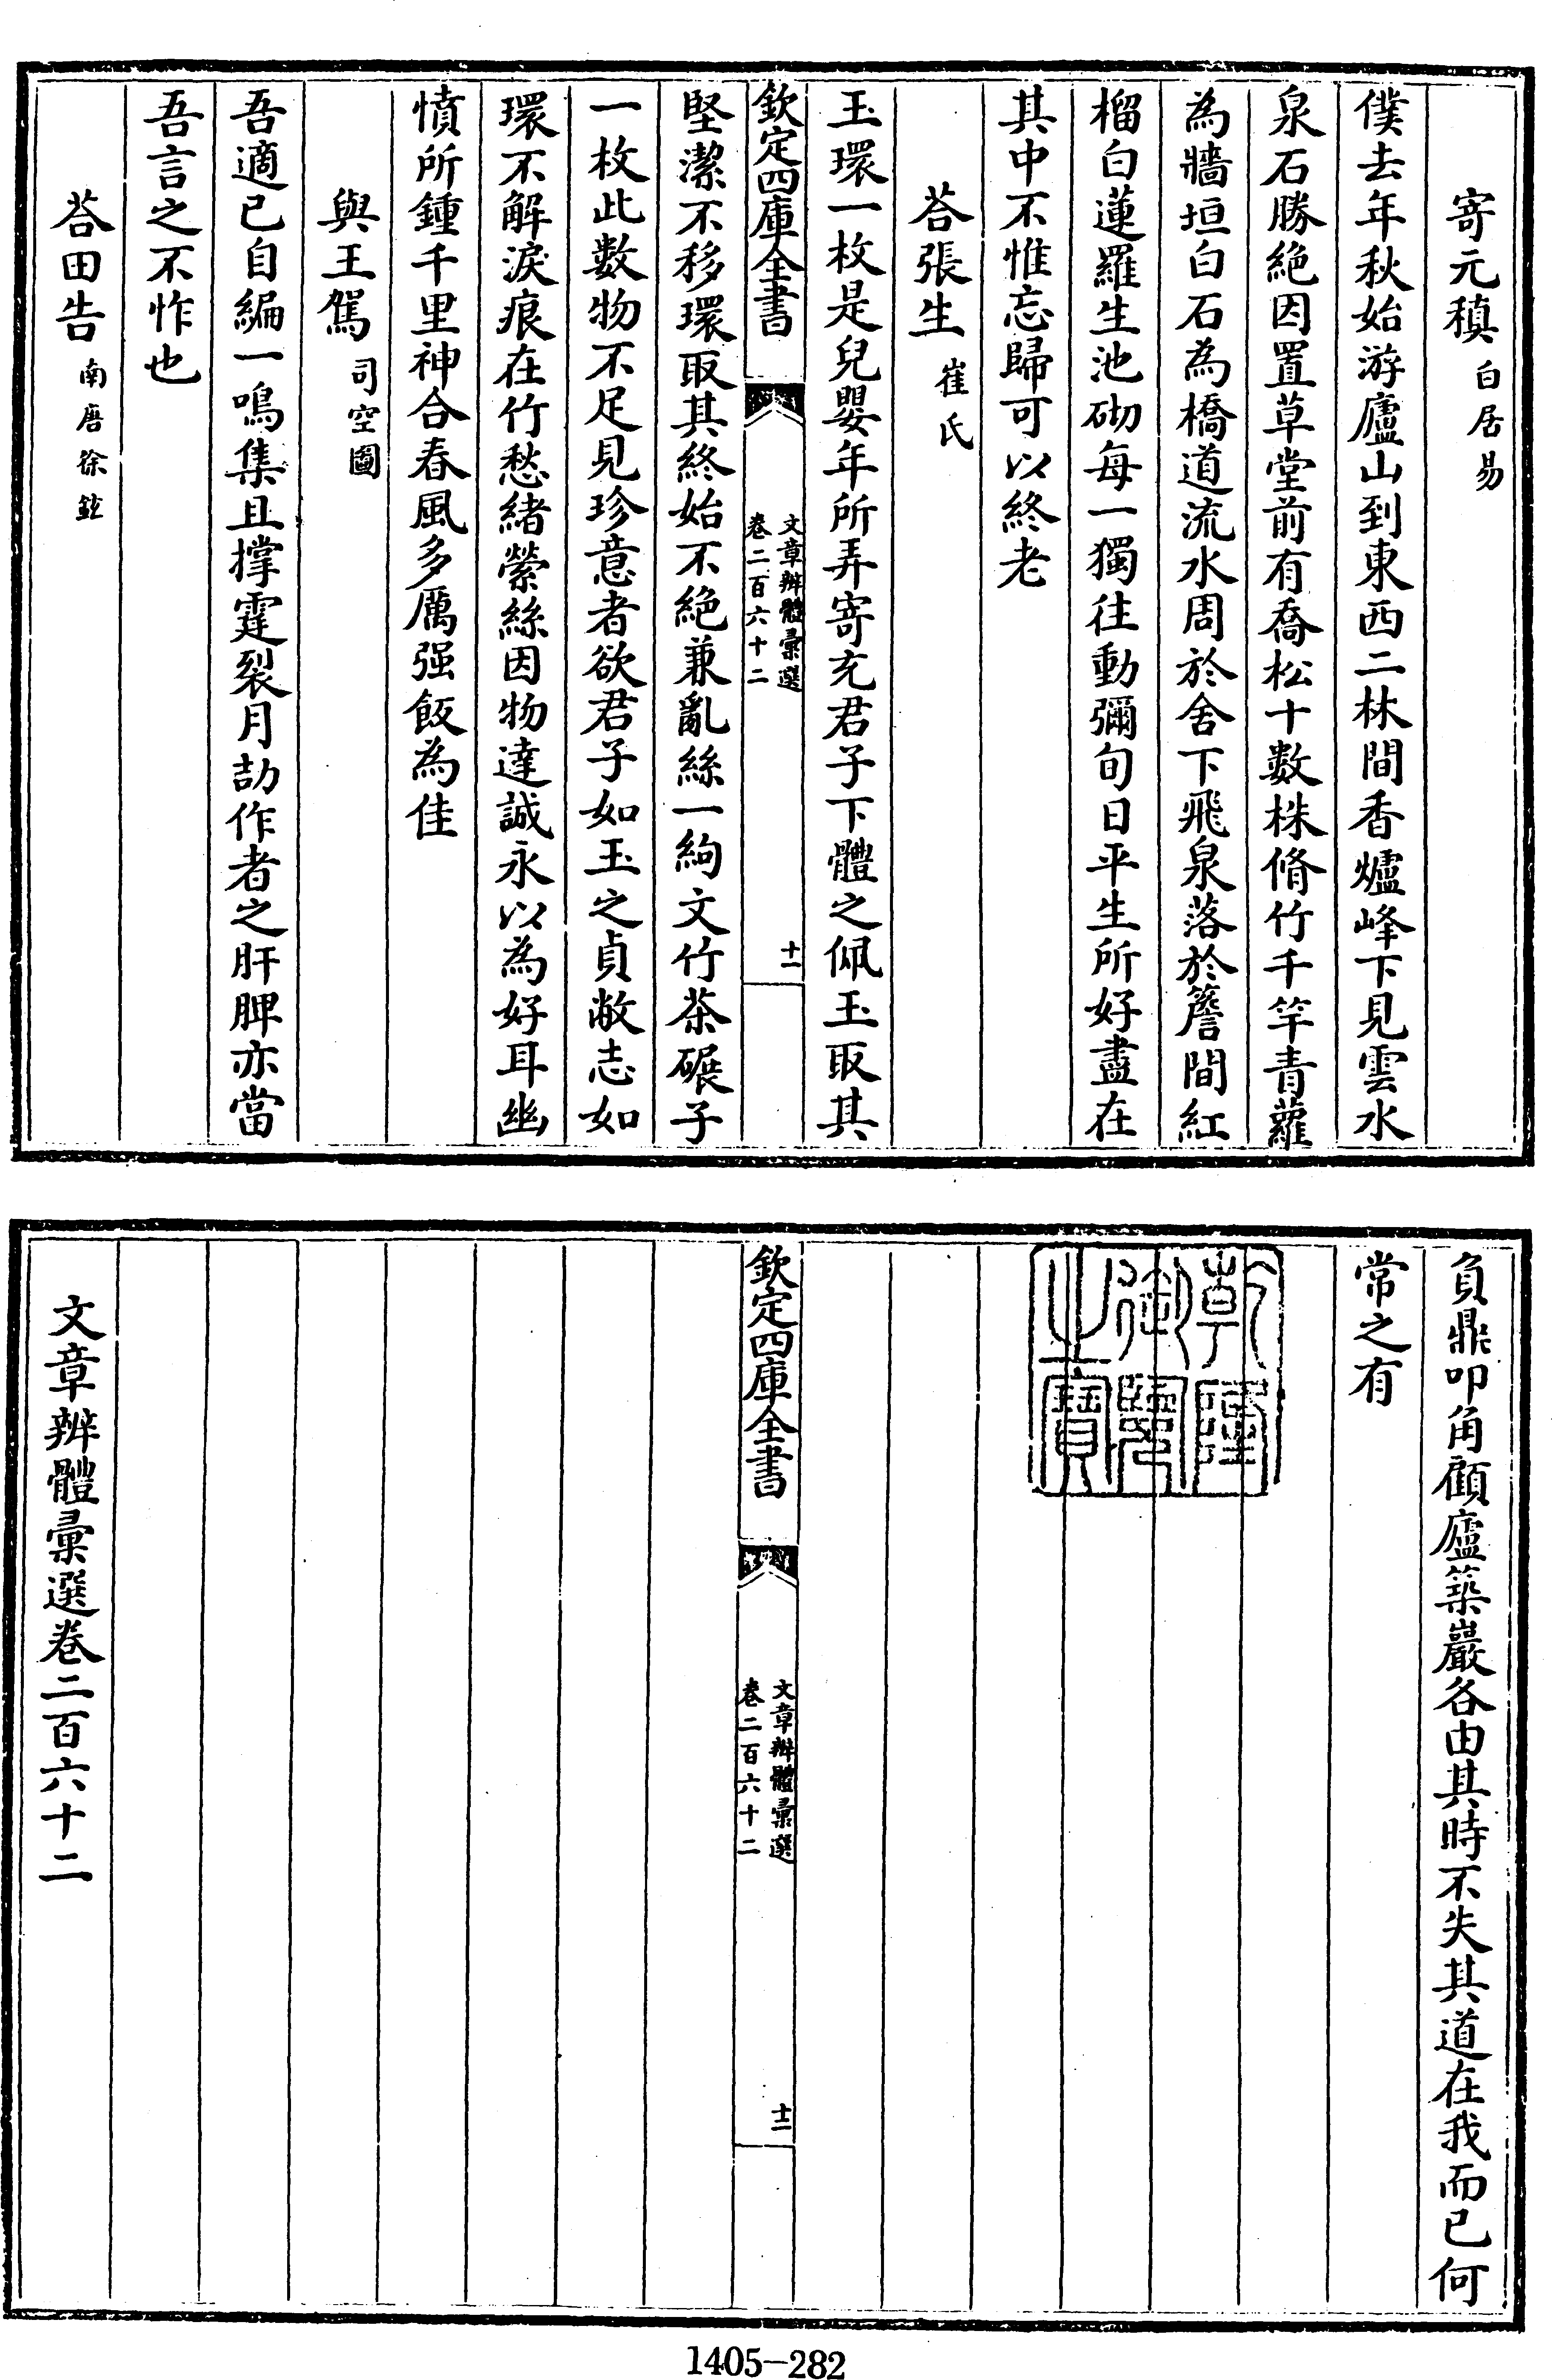 寄元稹白居易
僕去年秋始游廬山到東西二林間香爐峰下見雲水
泉石勝絶因置草堂前有喬松十數株脩竹千竿青蘿
為牆垣白石為橋道流水周於舍下飛泉落於簷間紅
榴白蓮羅生池砌每一獨往動彌旬日平生所好盡在
其中不惟忘歸可以終老
荅張生崔氏
玉環一枚是兒嬰年所弄寄充君子下體之佩玉取其
欽定四庫全書
文章辨體彙選
卷二百六十二
十一
堅潔不移環取其終始不絶兼亂絲一絇文竹茶碾子
一枚此數物不足見珍意者欲君子如玉之貞敝志如
環不解淚痕在竹愁緒縈絲因物達誠永以為好耳幽
憤所鍾千里神合春風多厲强飯為佳
與王駕司空圖
吾適已自編一鳴集且撑霆裂月劼作者之肝脾亦當
吾言之不怍也
荅田告南唐徐鉉
負鼎叩角顧廬築巖各由其時不失其道在我而已何
常之有
乾隆御覽之寶
欽定四庫全書
文章辨體彙選
卷二百六十二
十二
文章辨體彙選卷二百六十二
1405-282